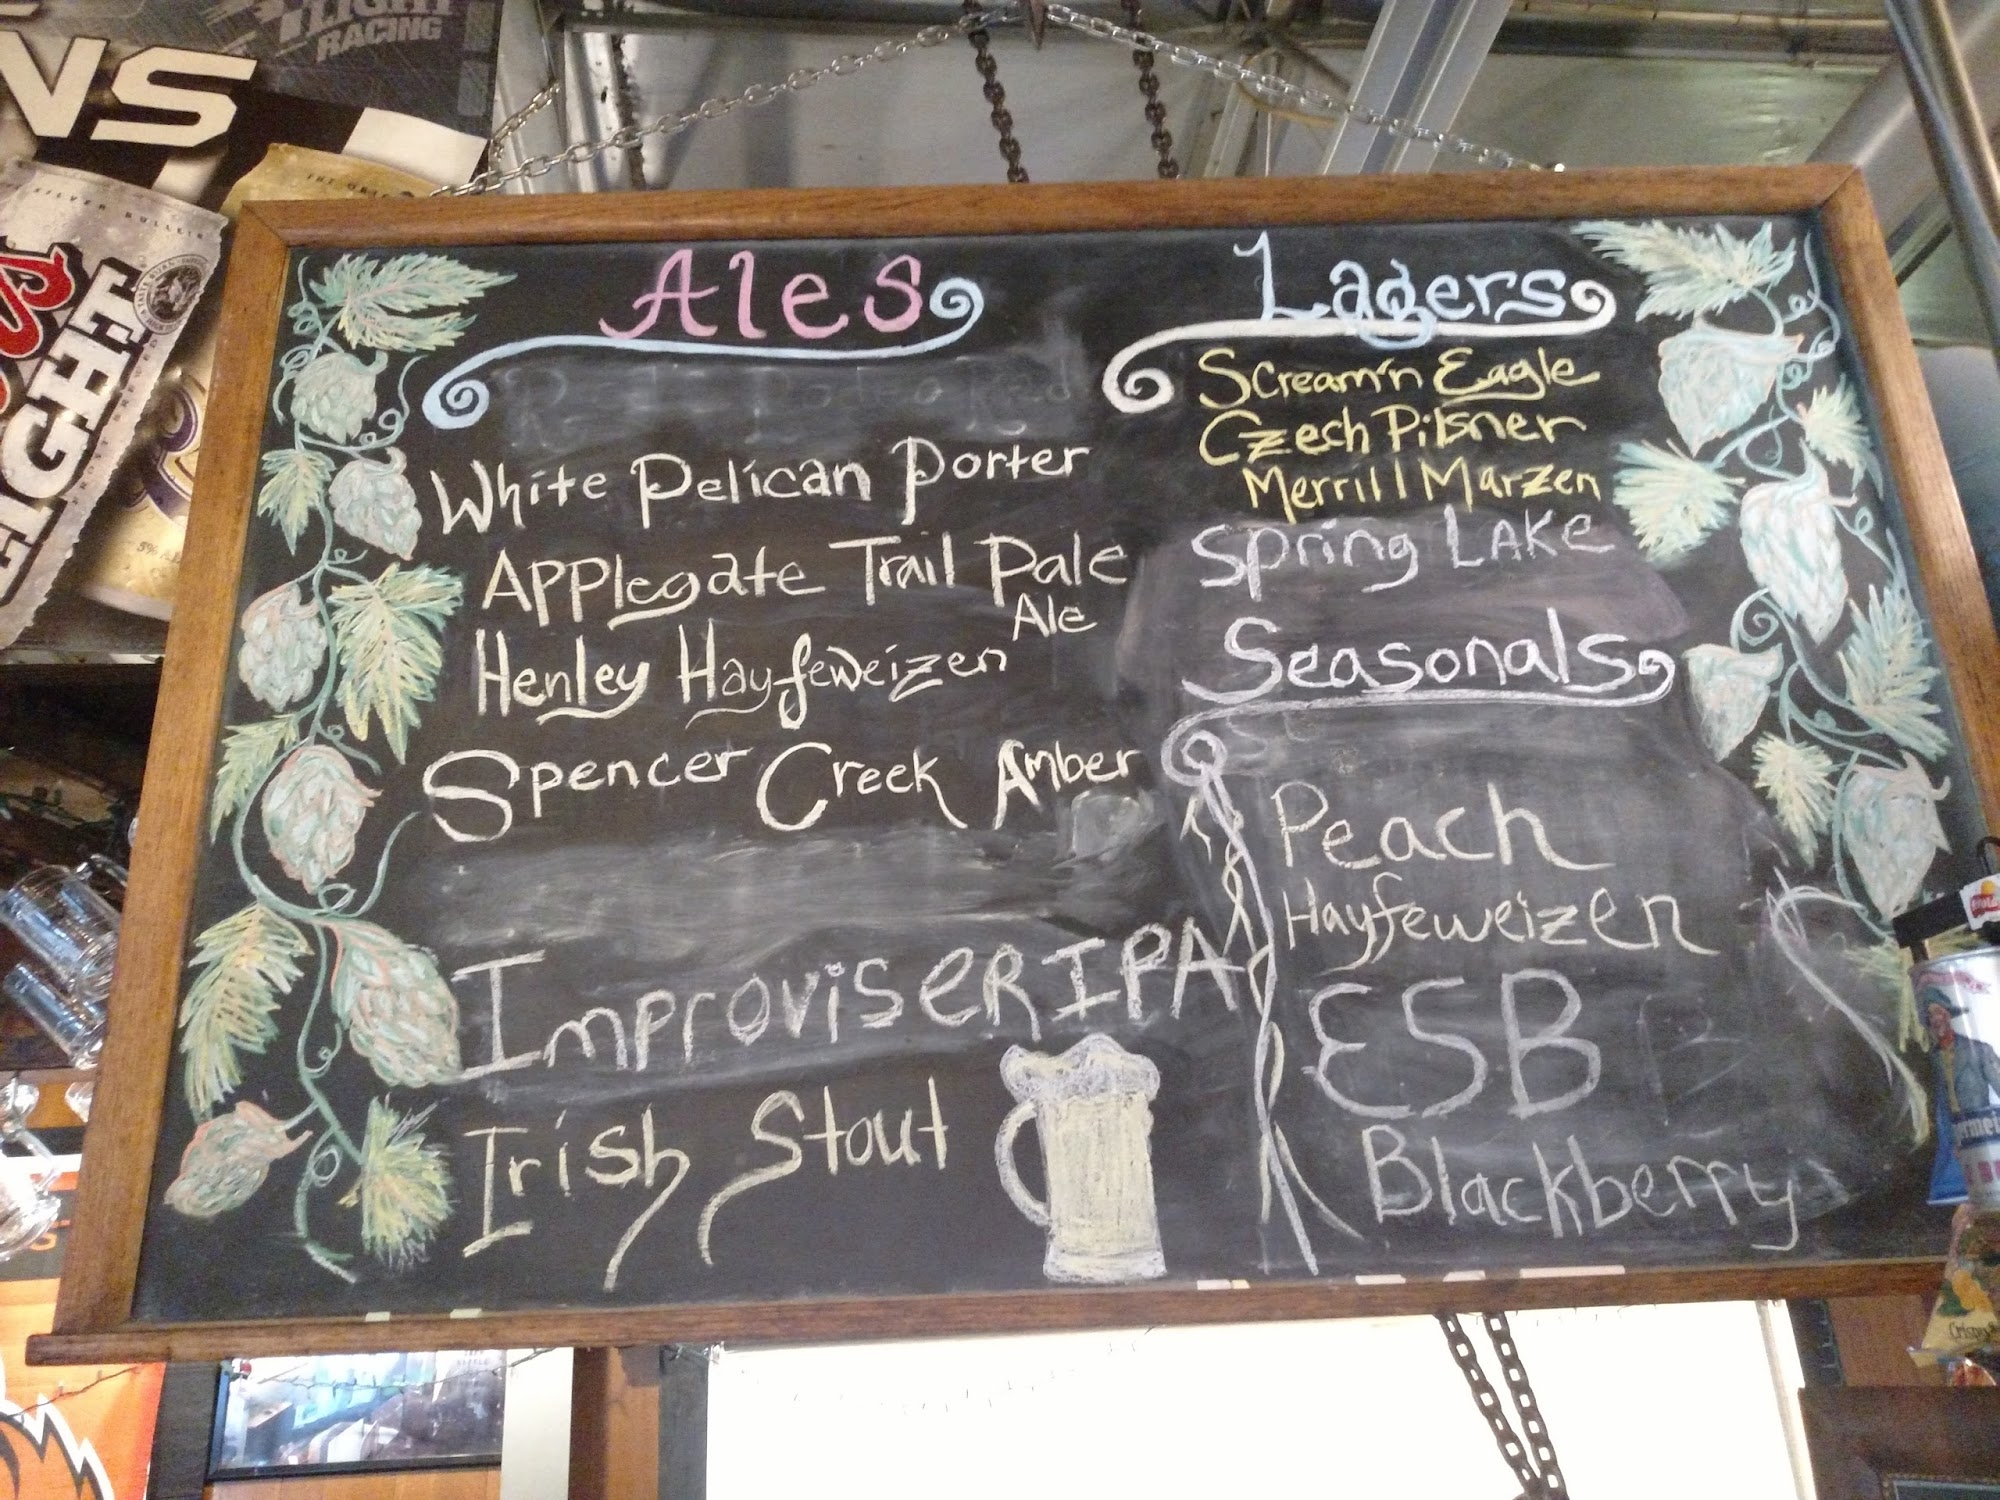 NS
LIGHT
RACING
SILVER BULLET
LIGHT
Ales
White Pelican Porter
Applegate Trail Pale
Ale
Henley Hayfeweizen
Spencer Creek Amber
Improviser IPA
Irish Stout
Lagers
Scream'n Eagle
Czech Pilsner
Merrill Marzen
Spring Lake
Seasonals
Peach
Hayfeweizen
ESB
Blackberry